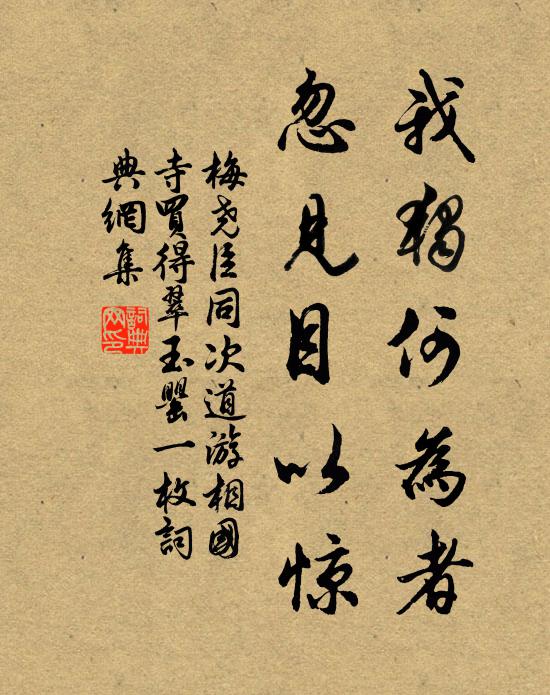 我獨何為者
忽見目以惊
梅尧臣同次道游相國
寺買得翠玉罌一枚詞
典網集
詞典網印